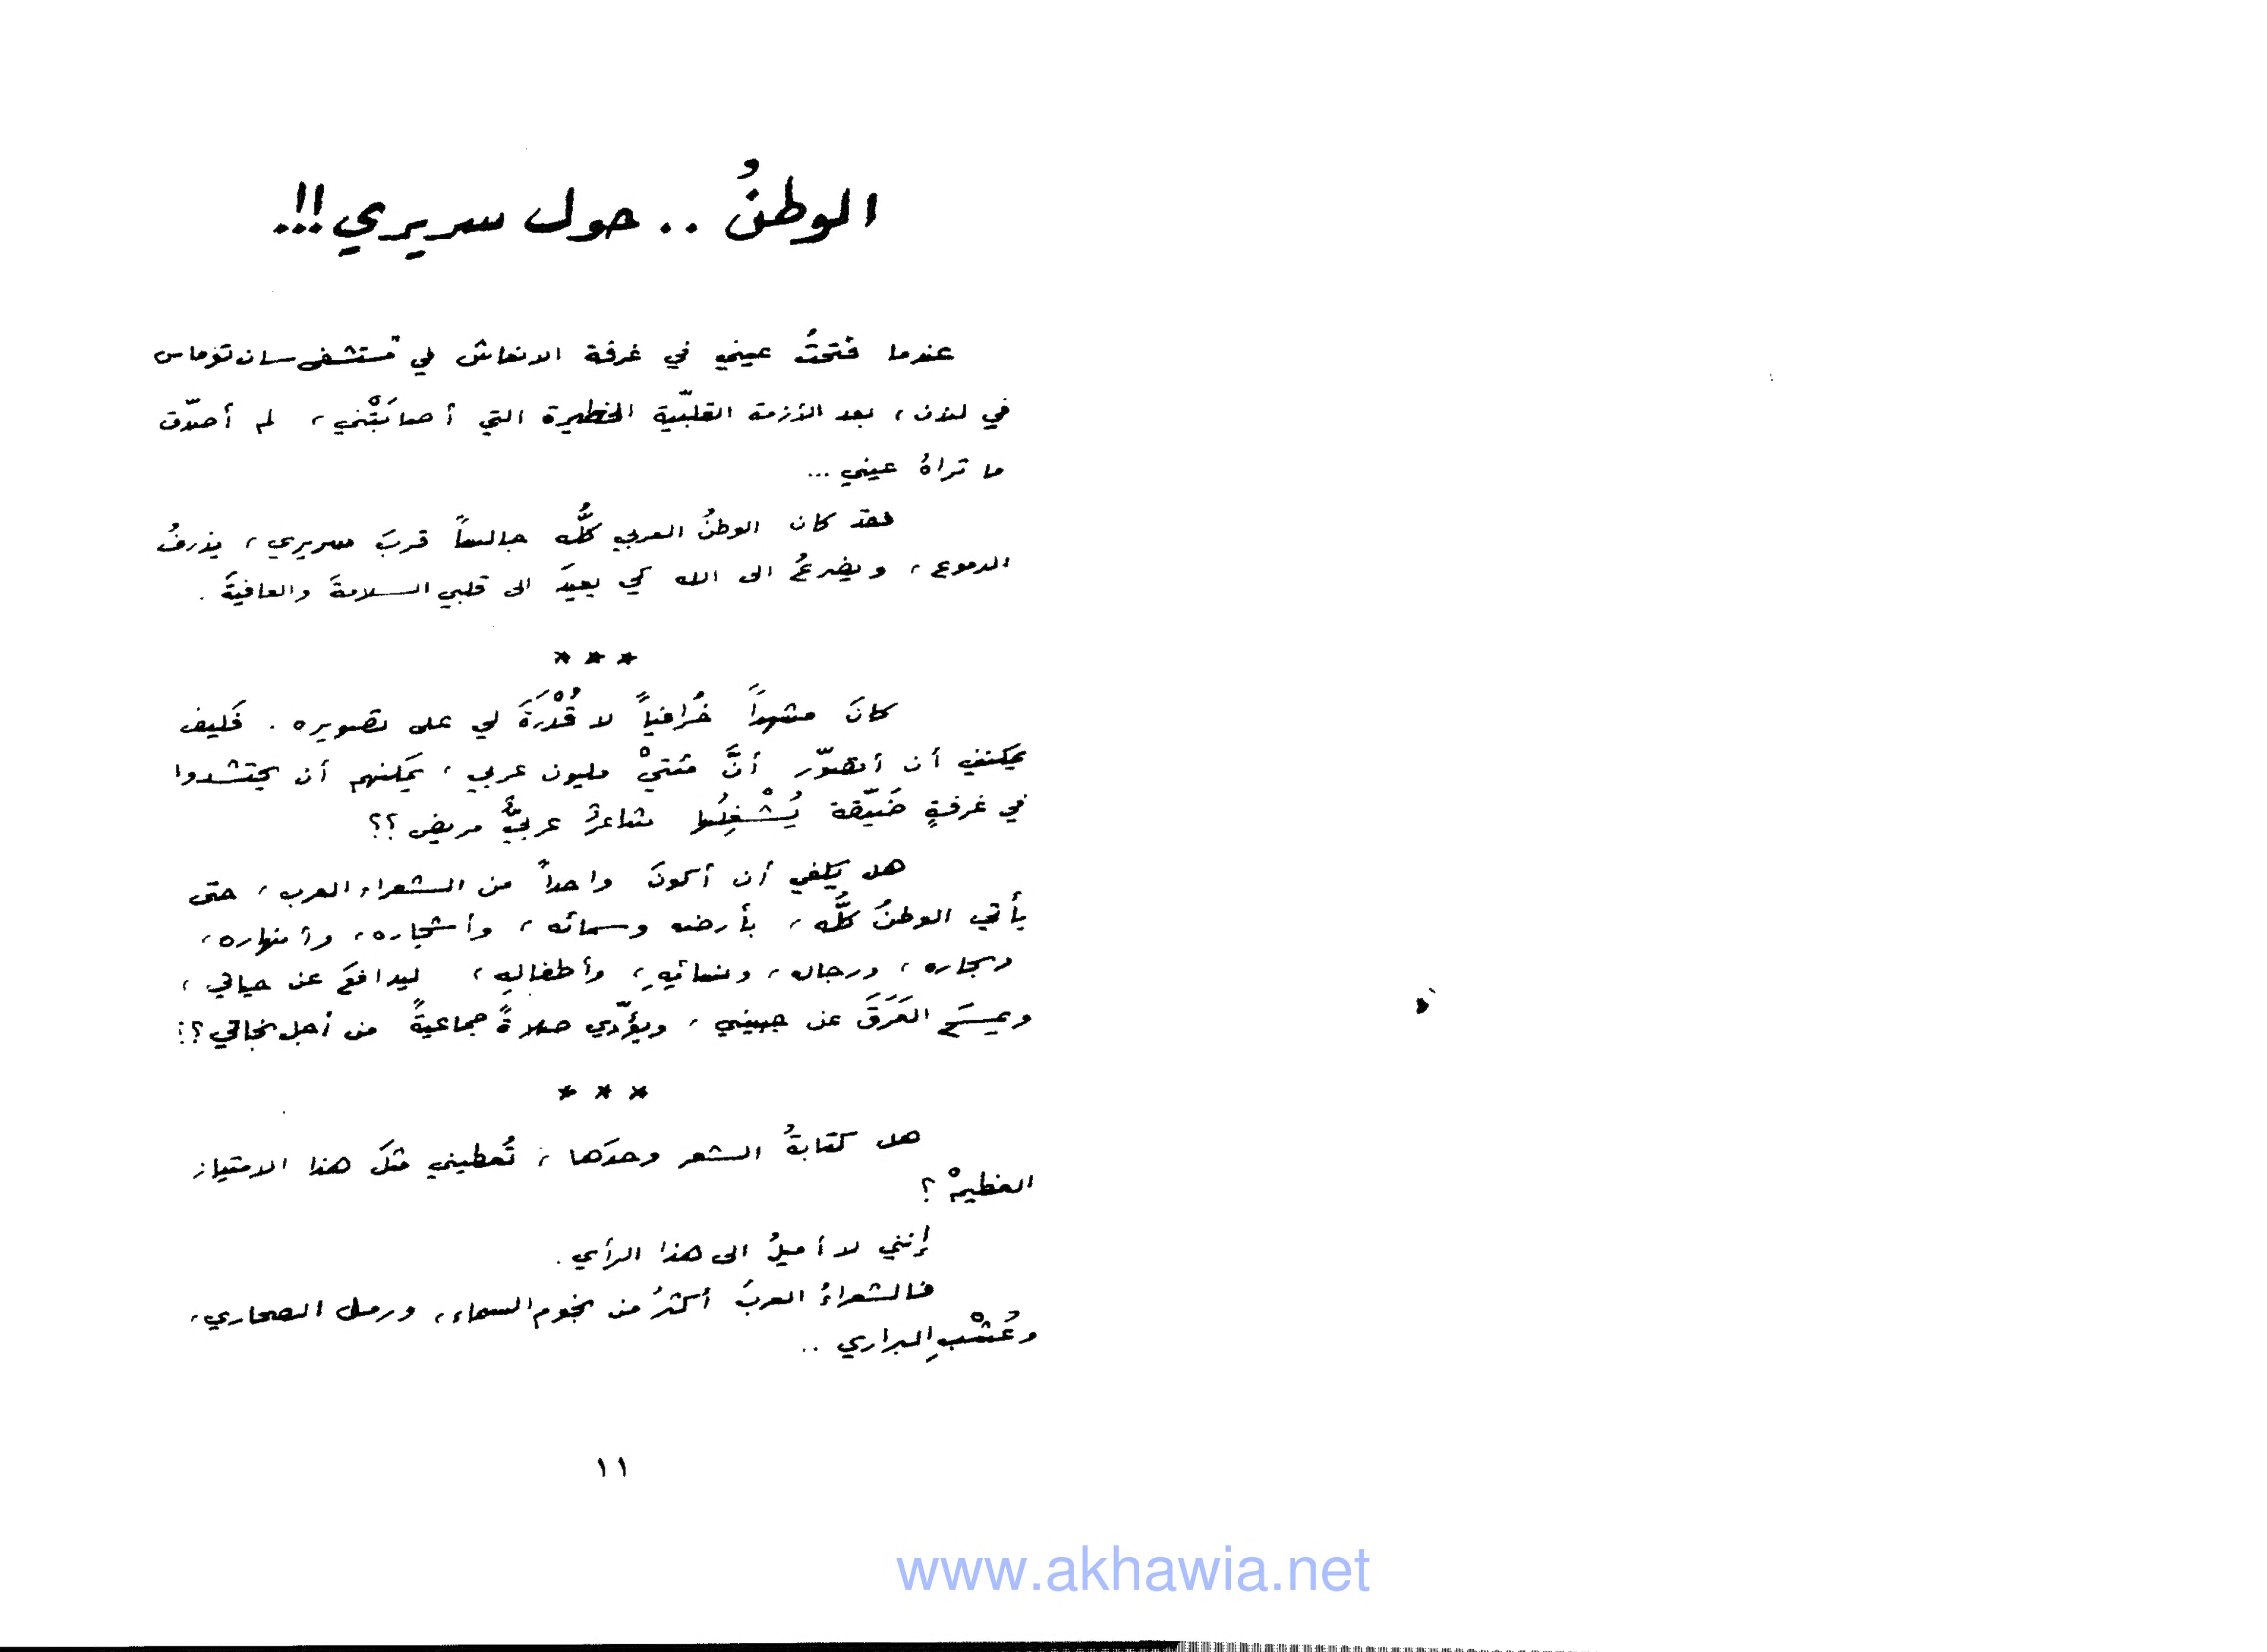 الوطنُ .. حول سريري !!!
عندما فتحتُ عيني في غرفة الانعاش في مستشفى سان توماس
في لندن ، بعد الأزمة القلبّية الخطيرة التي أصابَتْني ، لم أصدّق
ما تراهُ عيني ...
فقد كان الوطنُ العربي كلُّه جالساً قربَ سريري ، يذرفُ
الدموع ، ويضرعُ الى الله كي يعيدَ الى قلبي السلامةَ والعافيةَ .
* * *
كانَ مشهداً خُرافياً لا قُدْرَةَ لي على تصويره . فَكيف
يمكنني أن أتصوّر أنَّ مئتيْ مليون عربي ، يمكنهم أن يحتشدوا
في غرفةٍ ضَيّقة يُشْغِلُها شاعرٌ عربيٌّ مريض ؟؟
هل يكفي أن أكونَ واحداً من الشعراء العرب ، حتى
يأتي الوطنُ كلُّه ، بأرضه وسمائه ، وأشجاره ، وأنهاره ،
وبحاره ، ورجاله ، ونسائِهِ ، وأطفالِهِ ، ليدافعَ عن حياتي ،
ويمسَح العَرَقَ عن جبيني ، ويؤدّي صلاةً جماعيةً من أجل نجاتي ؟؟
* * *
هل كتابةُ الشعر وحدَها ، تُعطيني مثلَ هذا الامتياز
العظيمْ ؟
إنني لا أميلُ الى هذا الرأي .
فالشعراءُ العربُ أكثرُ من نجوم السماء ، ورمل الصحاري ،
وعُشْبِ البراري ..
١١
www.akhawia.net